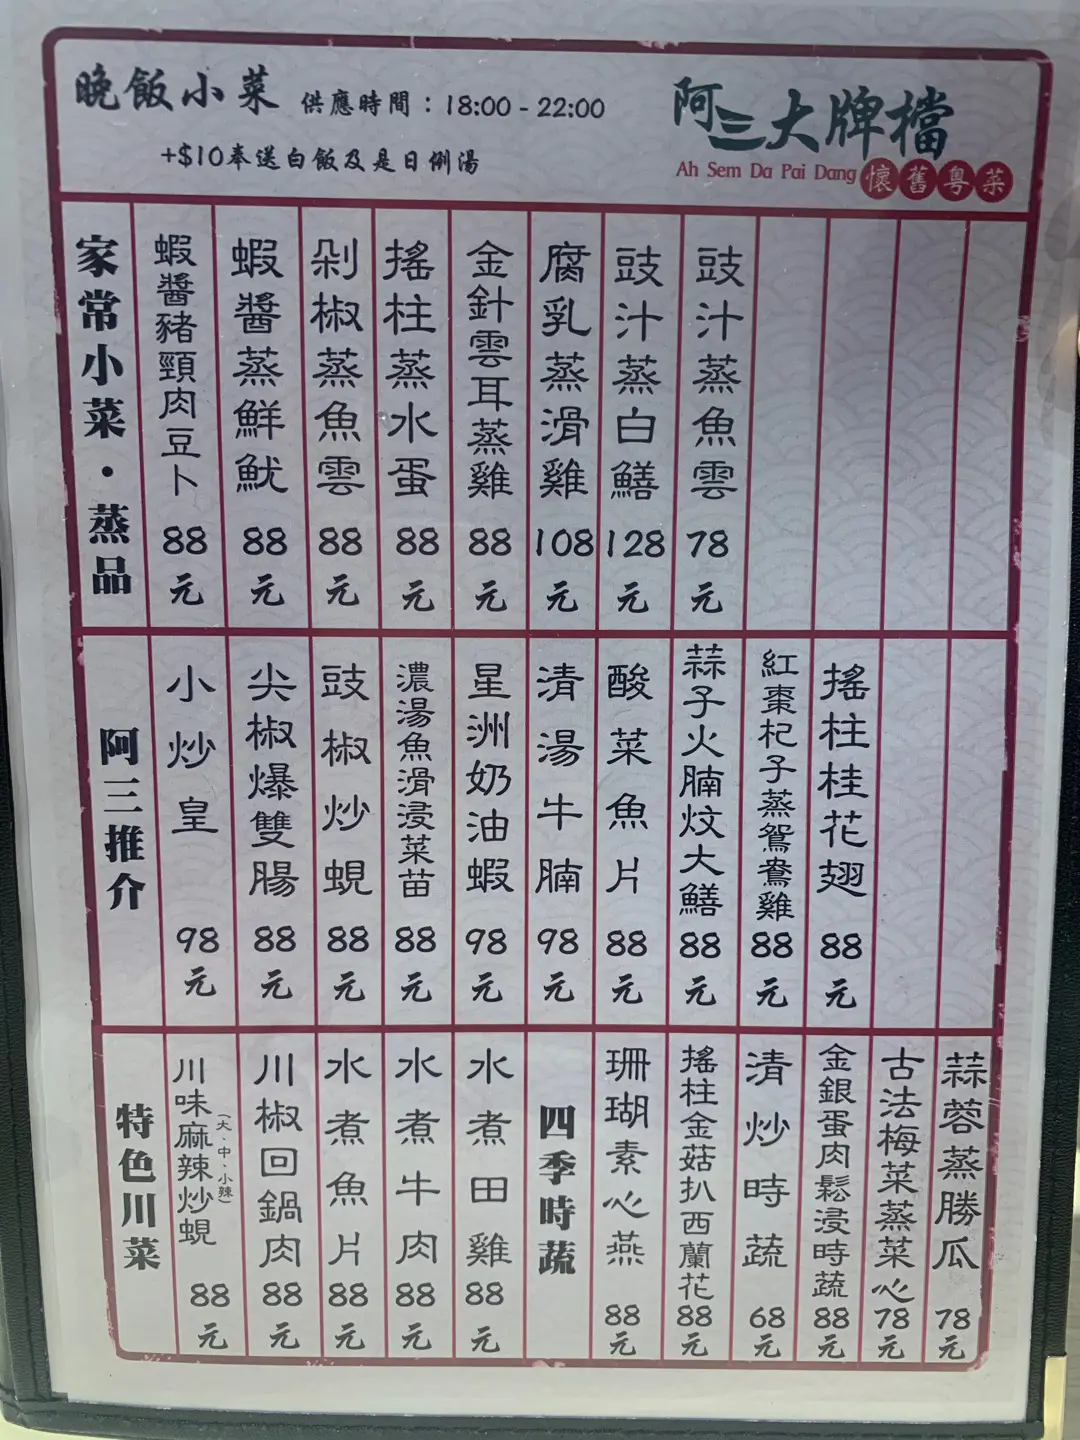 晚飯小菜 供應時間：18:00 - 22:00
+$10奉送白飯及是日例湯
阿三大牌檔
Ah Sem Da Pai Dang 懷舊粵菜
家常小菜・蒸品
蝦醬豬頸肉豆卜 88元
蝦醬蒸鮮魷 88元
剁椒蒸魚雲 88元
搖柱蒸水蛋 88元
金針雲耳蒸雞 88元
腐乳蒸滑雞 108元
豉汁蒸白鱔 128元
豉汁蒸魚雲 78元
阿三推介
小炒皇 98元
尖椒爆雙腸 88元
豉椒炒蜆 88元
濃湯魚滑浸菜苗 88元
星洲奶油蝦 98元
清湯牛腩 98元
酸菜魚片 88元
蒜子火腩炆大鱔 88元
紅棗杞子蒸鴛鴦雞 88元
搖柱桂花翅 88元
特色川菜
川味麻辣炒蜆（大、中、小辣） 88元
川椒回鍋肉 88元
水煮魚片 88元
水煮牛肉 88元
水煮田雞 88元
四季時蔬
珊瑚素心燕 88元
搖柱金菇扒西蘭花 88元
清炒時蔬 68元
金銀蛋肉鬆浸時蔬 88元
古法梅菜蒸菜心 78元
蒜蓉蒸勝瓜 78元